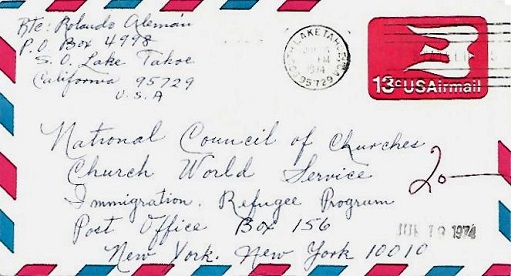 Rte: Rolando Alemán
P.O Box 4998
S.O. Lake Tahoe
California 95729
U.S.A
LAKE TAHOE
PM
1974
95729
13c USAirmail
National Council of Churches
Church World Service
Immigration. Refugee Program
Post Office Box 156
New York. New York 10010
20
JUN 19 1974